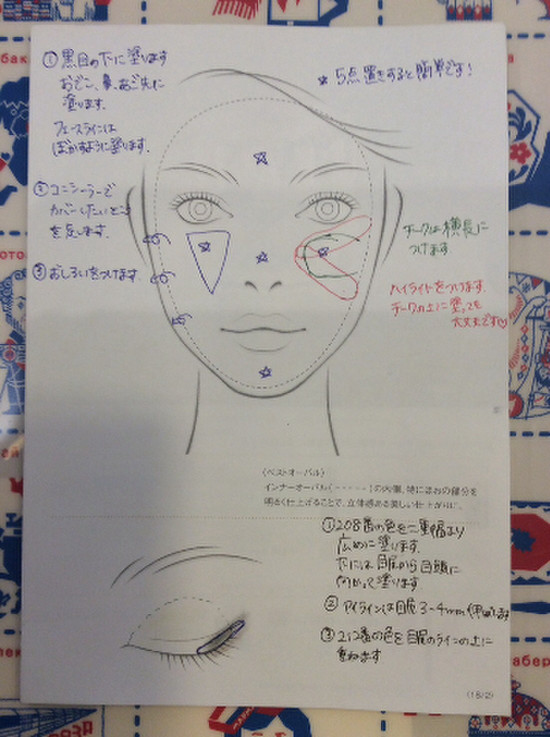 ① 黒目の下に塗ります
おでこ、鼻、あご先に
塗ります。
フェースラインは
ぼかすように塗ります。
☆ 5点置きすると簡単です!
② コンシーラーで
カバーしたいところ
を足します。
③ おしろいをつけます。
チークは横長に
つけます
ハイライトをつけます。
チークの上に塗っても
大丈夫です♡
〈ベストオーバル〉
インナーオーバル(-----)の内側、特にほおの部分を
明るく仕上げることで、立体感ある美しい仕上がりに。
① 208番の色を二重幅より
広めに塗ります。
下には目尻から目頭に
向かって塗ります
② アイラインは目尻3~4mm
③ 212番の色を目尻のラインの上に
重ねます
(18/2)